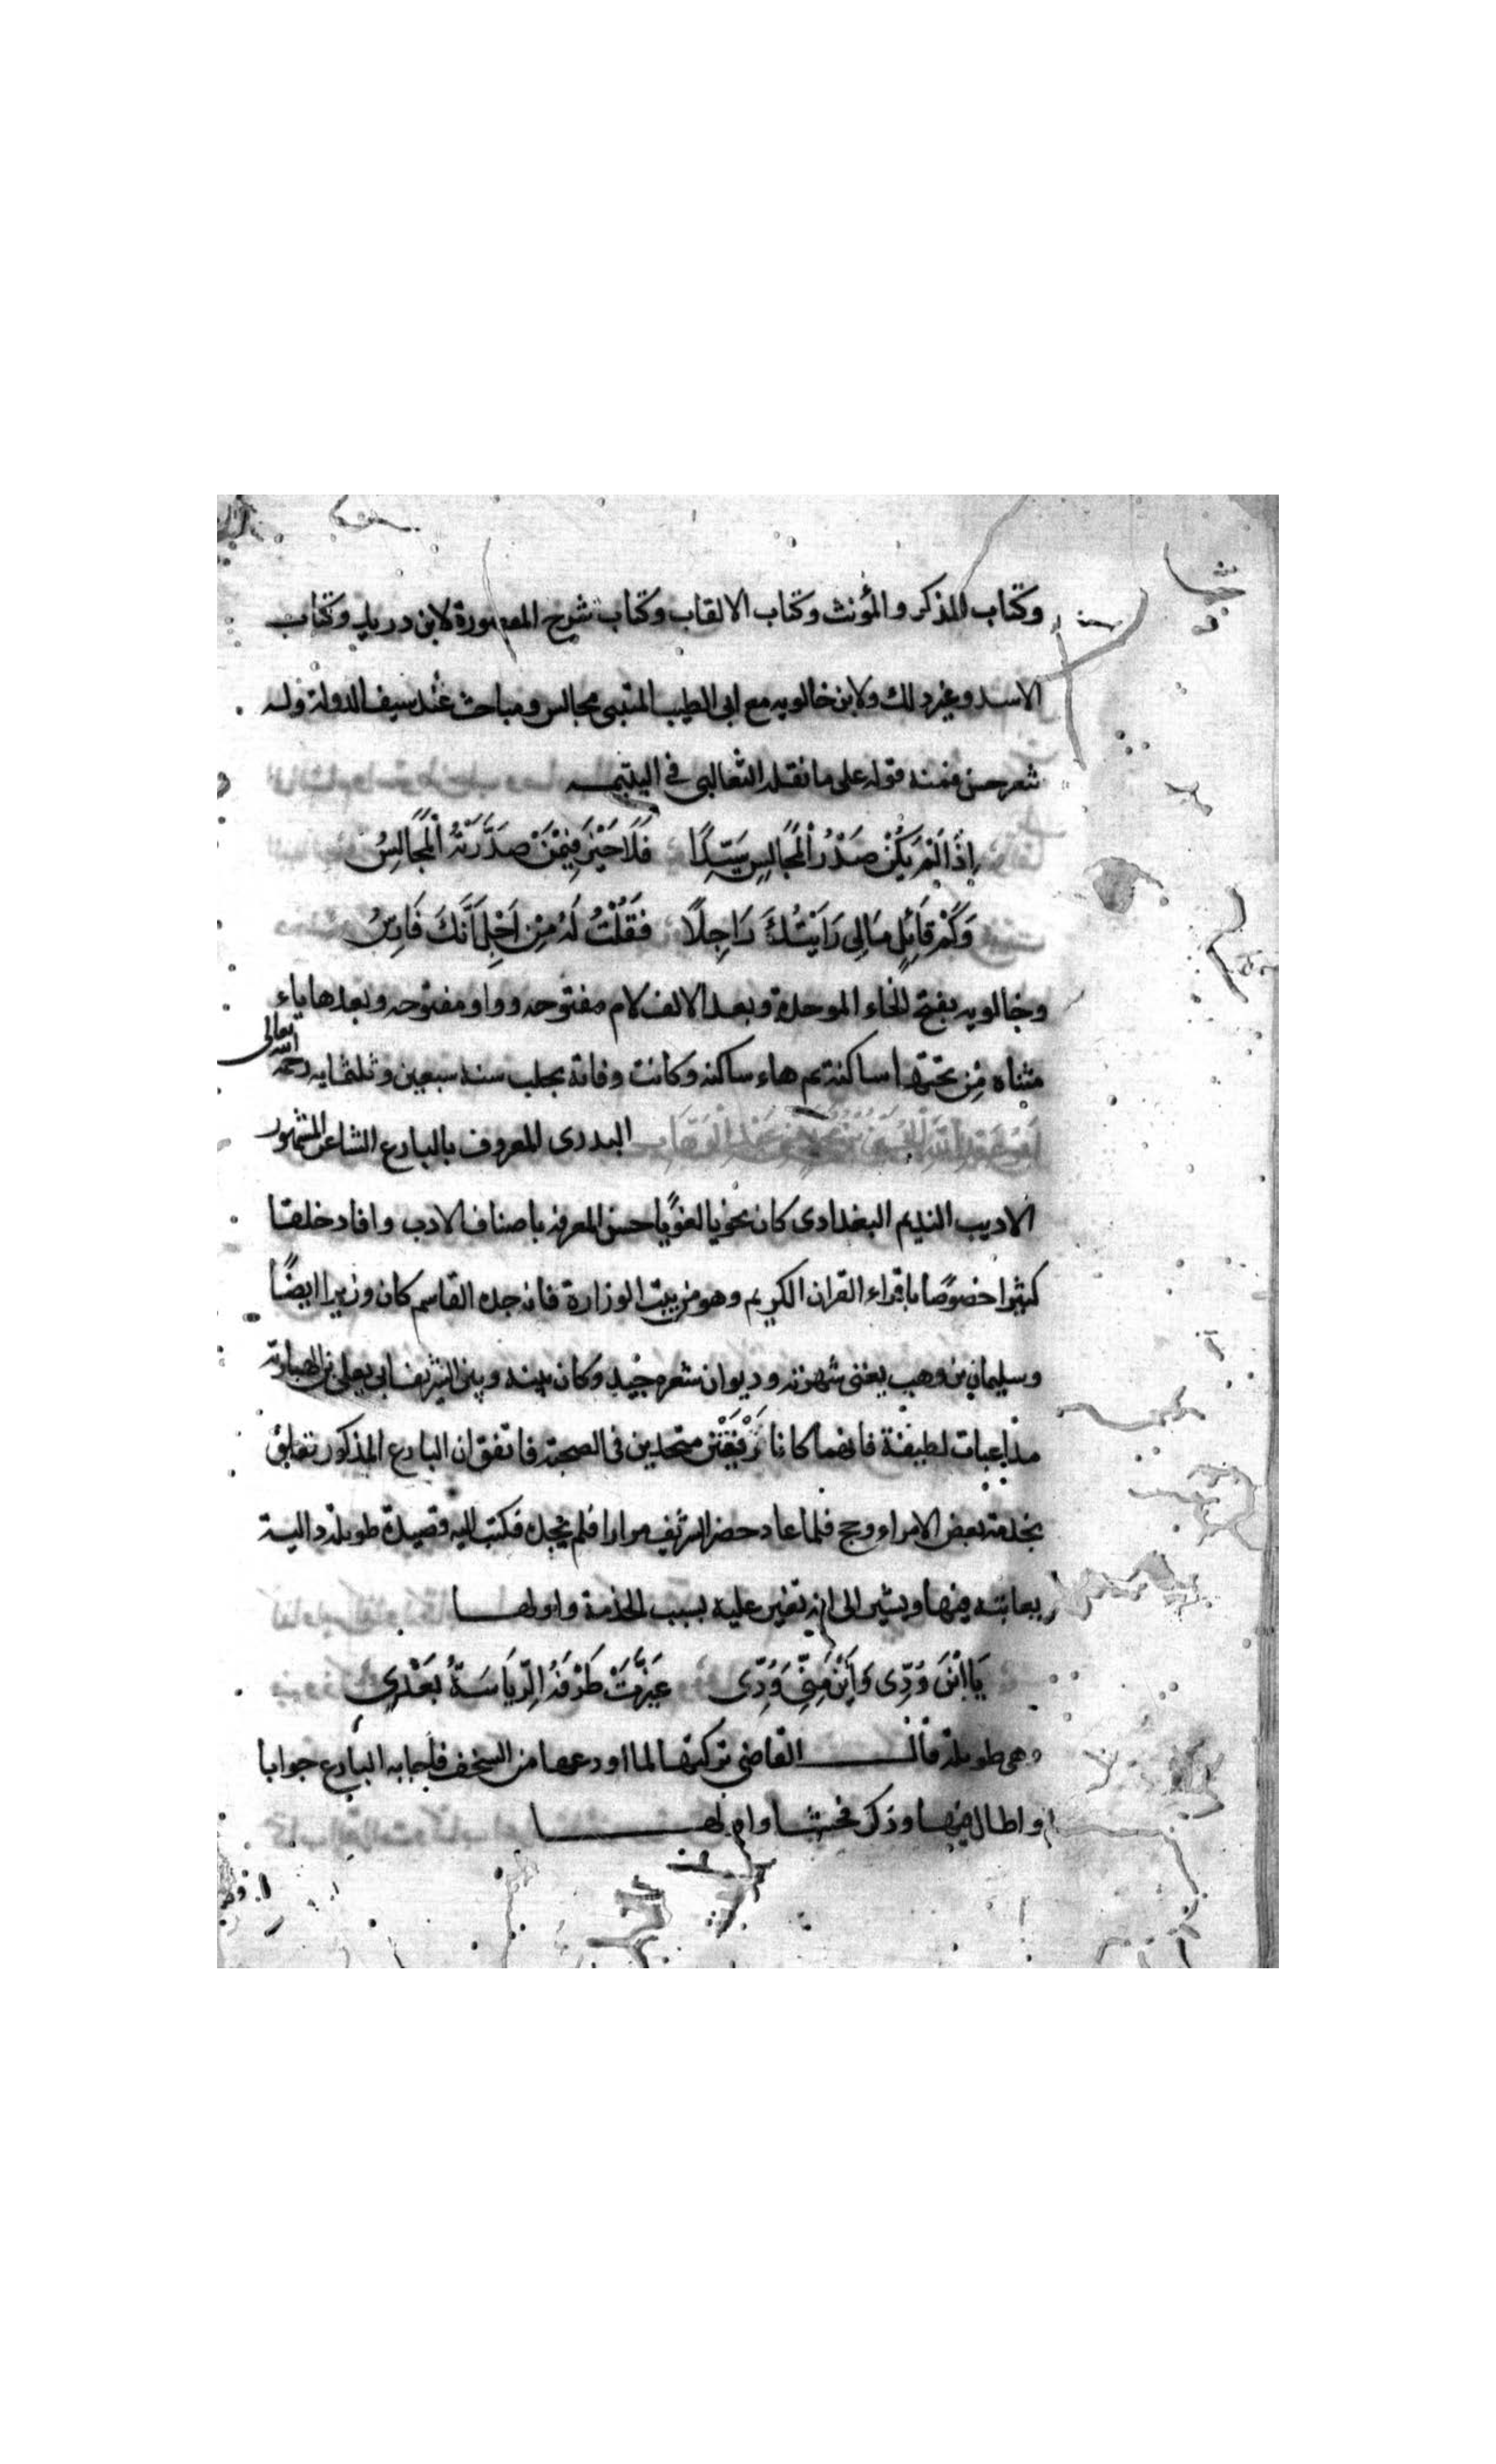 وكتاب المذكر والمؤنث وكتاب الالقاب وكتاب شرح المقصورة لابن دريد وكتاب
الاسد وغير ذلك ولابن خالويه مع ابى الطيب المتنبى مجالس ومباحث عند سيف الدولة وله
شعر حسن فمنه قوله على ما نقله الثعالبى فى اليتيمه
اِذَا لَمْ يَكُنْ صَدْرُ الْمَجَالِسِ سَيِّدًا فَلَا خَيْرَ فِيْمَنْ صَدَّرَتْهُ الْمَجَالِسُ
وَكَمْ قَائِلٍ مَالِى رَاَيْتُكَ رَاجِلًا فَقُلْتُ لَهُ مِنْ اَجْلِ اَنَّكَ فَارِسُ
وخالويه بفتح الخاء الموحدة وبعد الالف لام مفتوحه وواو مفتوحه وبعدها ياء
مثناه مِن تحتها ساكنة ثم هاء ساكنه وكانت وفاته بحلب سنه سبعين وثلثمايه رحمه الله تعالى
اَبُوْ عَبْدِ اللّٰهِ الْحُسَيْنُ بْنُ مُحَمَّدِ بْنِ عَبْدِ الْوَهَّابِ البدرى المعروف بالبارع الشاعر المشهور
الاديب النديم البغدادى كان نحويا لغويًا حسن المعرفه باصناف الادب وافاد خلقا
كثيرا خصوصًا باقراء القران الكريم وهو من بيت الوزارة فان جده القاسم كان وزيرا ايضًا
وسليمان بن وهب يغنى شهرته وديوان شعره جيد وكان بينه وبين الشريف ابى يعلى بن الهبارية
مداعبات لطيفة فانهما كانا رَفِيْقَيْن متحدين فى الصحبة فاتفق ان البارع المذكور تعلق
بخدمة بعض الامراء وحج فلما عاد حضر الشريف مرارا فلم يجده فكتب اليه قصيدة طويلة دالية
يعاتبه فيها ويشير الى انه تغير عليه بسبب الخدمة واولها
يَا ابْنَ وُدِّى وَاَيْنَ مِنِّى وُدِّى غَيَّرَتْ طَرْفَهُ الرِّيَاسَةُ بَعْدِى
وهى طويلة قال القاضى تركتها لما اودعها من السخف فاجابه البارع جوابا
واطال فيها وذكر فحشا واولها